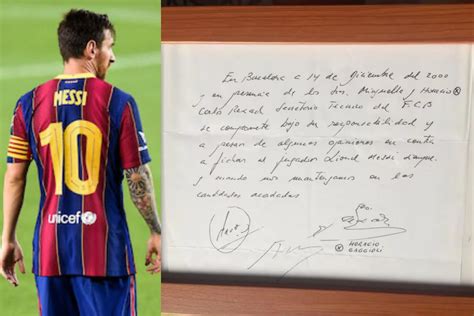 MESSI
10
unicef
En Barcelona a 14 de diciembre del 2000
y en presencia de los Srs. Minguella y Horacio
Carlos Rexach Secretario Técnico del F.C.B
se compromete bajo su responsabilidad y
a pesar de algunas opiniones en contra
a fichar al jugador Lionel Messi siempre
y cuando nos mantengamos en las
cantidades acordadas
HORACIO
GAGGIOLI